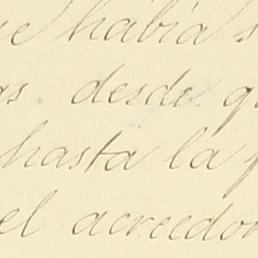 había
desde
hasta la
el acreedor